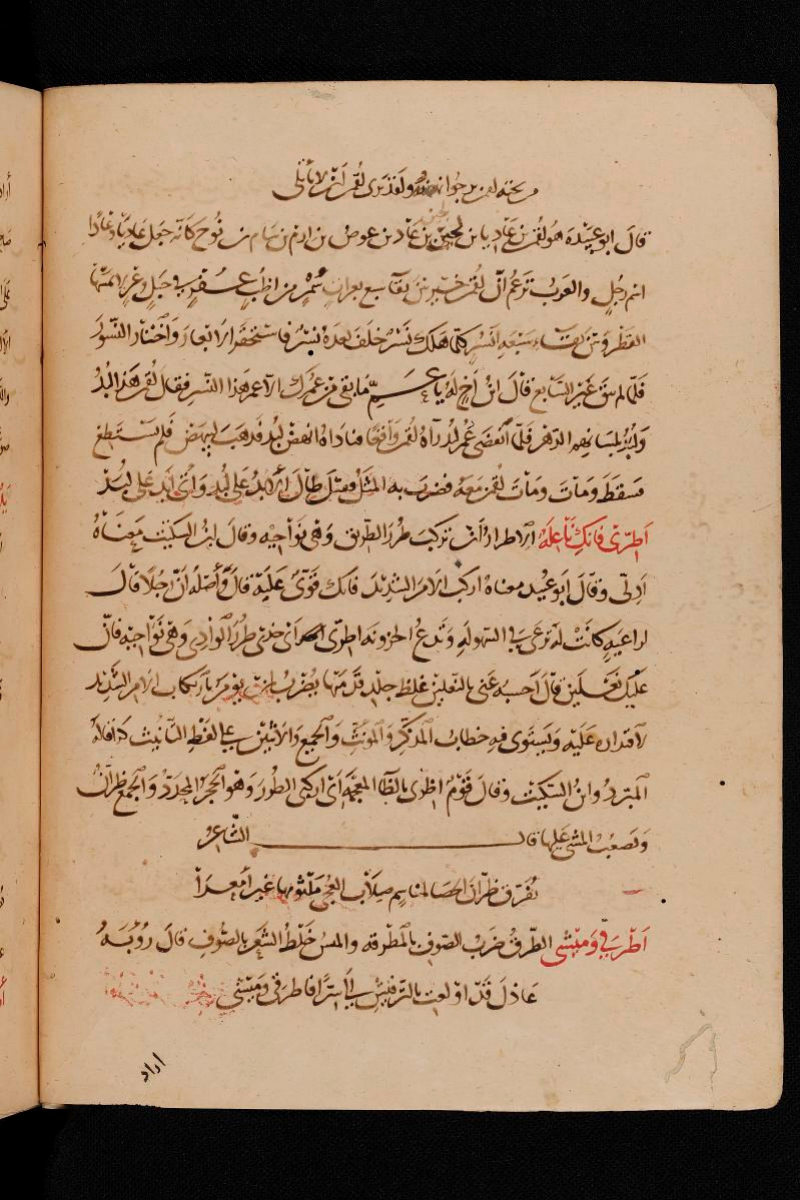 من تحته لقمن يرجوا نهضه ولقد يرى لقمن أن لا يأتلى
قال ابو عبيدة هو لقمن بن عاديا بن لجين بن عاد بن عوص بن ارم بن سام بن نوح كانه جعل عاديا وعادا
اسم رجل والعرب تزعم ان لقمن خير بين بقا سبع بعرات سمر من اظب عفر في جبل وعر لا يمسها
القطر وبين بقاء سبعة انسر كلما هلك نسر خلف بعده نسر فاستحقر الابعار واختار النسور
فلما لم يبق غير السابع قال ابن اخ له يا عم ما بقى من عمرك الا عمر هذا النسر فقال لقمن هذا لبد
ولبد بلسانهم الدهر فلما انقضى عمر لبد رآه لقمن واقعا فناداه انهض لبد فذهب لينهض فلم يستطع
فسقط ومات ومات لقمن معه فضرب به المثل ومثل طال الابد على لبد وأتى ابد على لبد
اطرى فانك ناعله الاطرار أن تركب طرر الطريق وهي نواحيه وقال ابن السكيت معناه
ادلى وقال ابو عبيد معناه اركب الامر الشديد فانك قوى عليه قال وأصله أن رجلا قال
لراعية كانت له ترعى في السهولة وتدع الحزونة اطرى اى خذى طرر الوادى وهي نواحيه فان
عليك نعلين قال احسبه عنى بالنعلين غلظ جلد قدميها يضرب لمن يؤمر بارتكاب الامر الشديد
لاقتداره عليه ويستوى فيه خطاب المذكر والمونث والجمع والاثنين على لفظ التانيث كذا قاله
المبرد وابن السكيت وقال قوم اظرى بالظا المعجمة أى اركبى الظرر وهو الحجر المحدد والجمع ظران
ويصعب المشى عليها قال الشاعر
تفرق ظران الحصا بمناسم صلاب العجى ملثومها غير أمعرا
اطرقى وميشى الطرق ضرب الصوف بالمطرقه والميش خلط الشعر بالصوف قال رؤبة
عاذل قد اولعت بالترقيش الى سرا فاطرقى وميشى
اراد